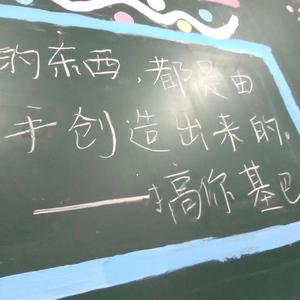 的东西,都是由
手创造出来的。
——搞你基巴